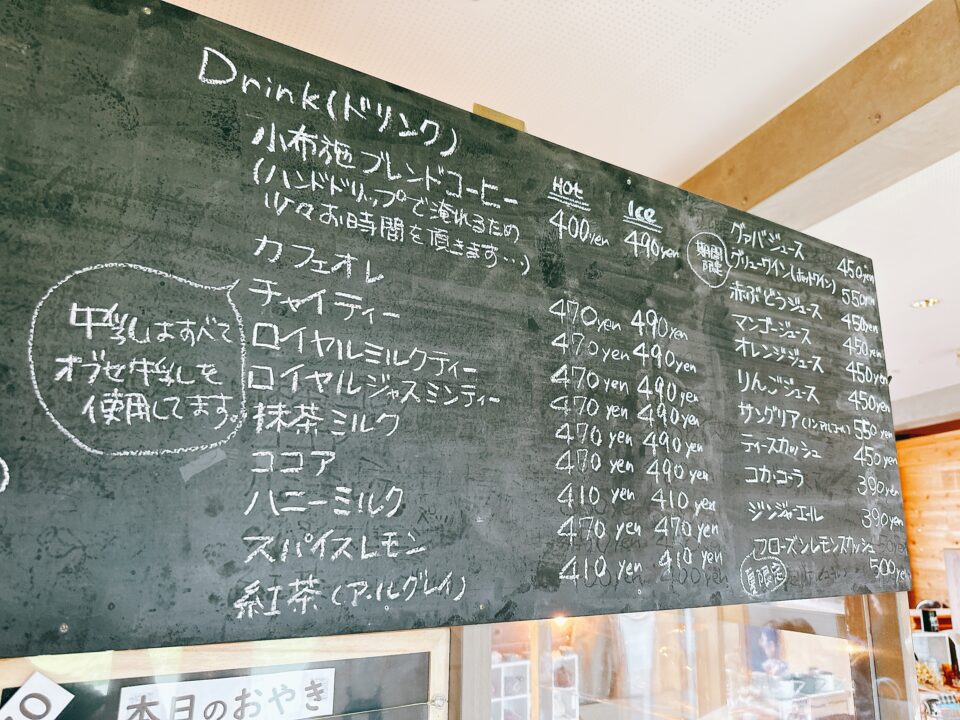 Drink(ドリンク)
HOt Ice
小布施ブレンドコーヒー 400yen 490yen
(ハンドドリップで淹れるため
少々お時間を頂きます…)
カフェオレ 470yen 490yen
チャイティー 470yen 490yen
ロイヤルミルクティー 470yen 490yen
ロイヤルジャスミンティー 470yen 490yen
抹茶ミルク 470yen 490yen
ココア 470yen 490yen
ハニーミルク 410yen 410yen
スパイスレモン 470yen 470yen
紅茶(アールグレイ) 410yen 410yen
牛乳はすべて
オブセ牛乳を
使用してます。
グァバジュース 450yen
期間
限定
グリューワイン(ホットワイン) 550yen
赤ぶどうジュース 450yen
マンゴージュース 450yen
オレンジジュース 450yen
りんごジュース 450yen
サングリア(ノンアルコール) 550yen
ティースカッシュ 450yen
コカ・コーラ 390yen
ジンジャーエール 390yen
フローズンレモンスカッシュ 500yen
夏限定
本日のおやき